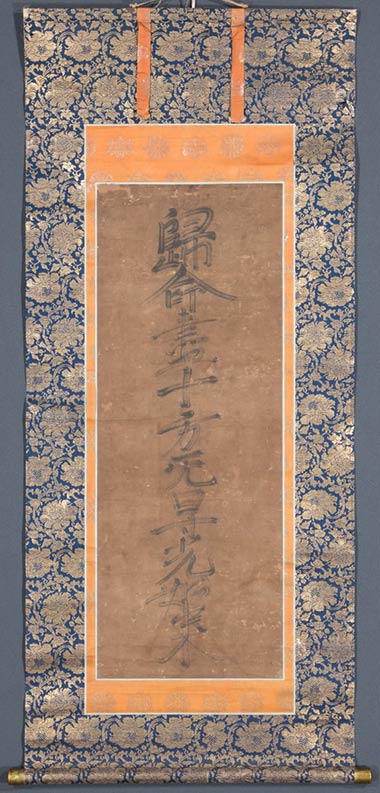 歸命盡十方无㝵光如来